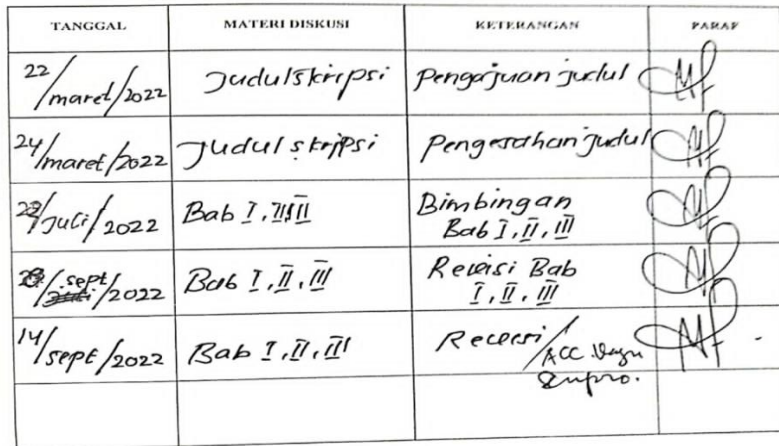 TANGGAL MATERI DISKUSI KETERANGAN PARAF
22/maret/2022 Judul skripsi Pengajuan judul
24/maret/2022 Judul skripsi Pengesahan judul
/Juli/2022 Bab I, II, III Bimbingan
Bab I, II, III
/sept/2022 Bab I, II, III Revisi Bab
I, II, III
14/sept/2022 Bab I, II, III Revisi/
ACC